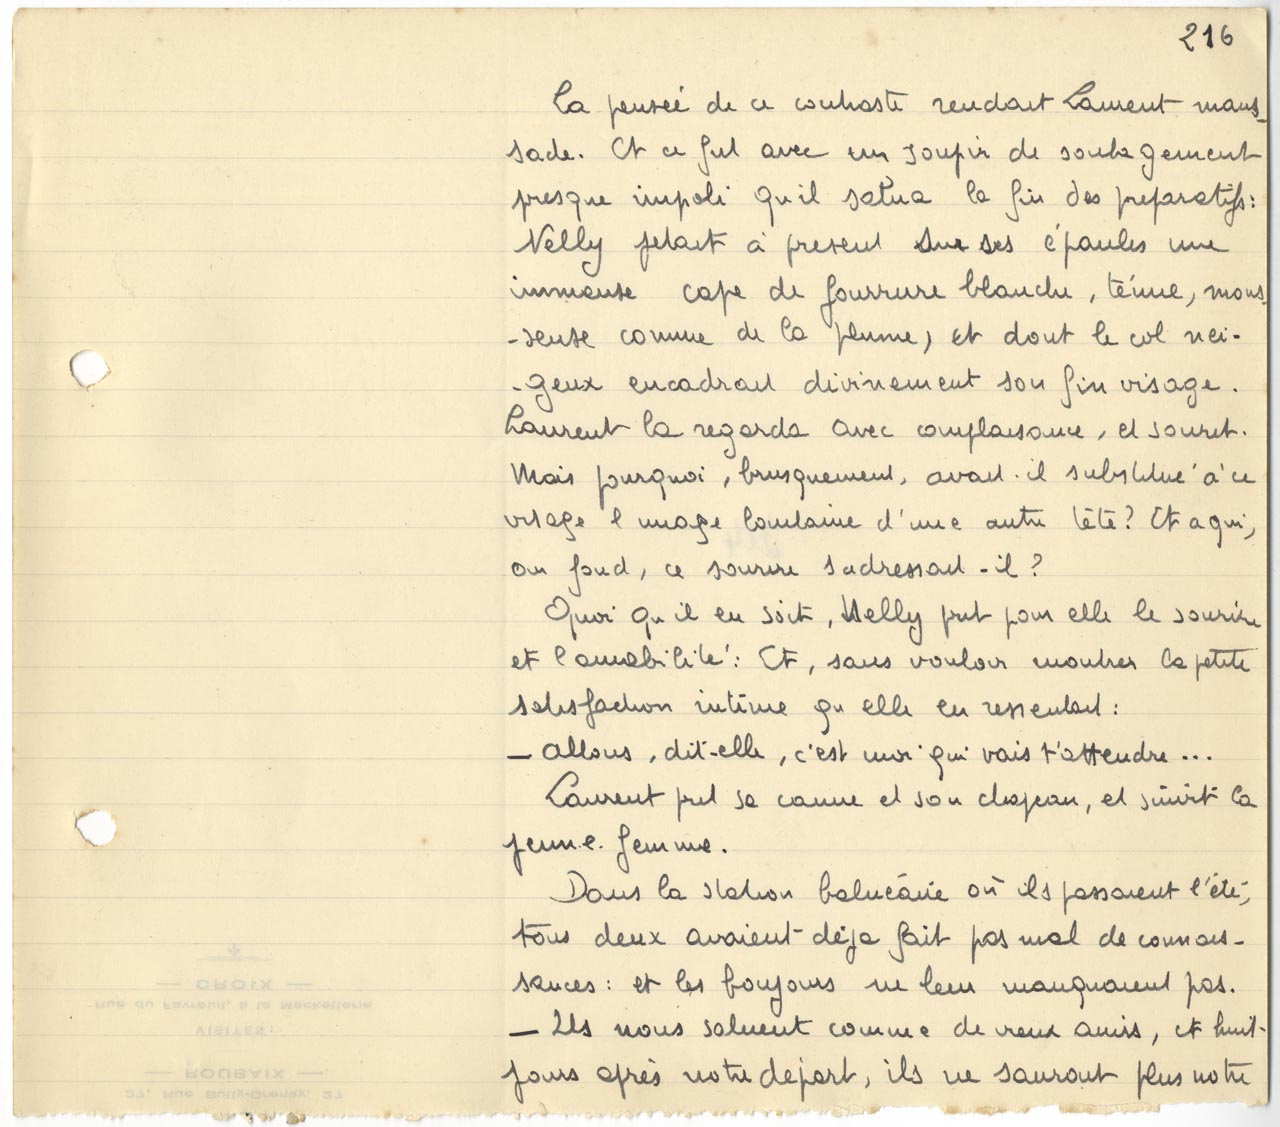 216
La pensée de ce contraste rendait Laurent maus-
sade. Et ce fut avec un soupir de soulagement
presque impoli qu'il salua la fin des préparatifs :
Nelly jetait à présent sur ses épaules une
immense cape de fourrure blanche, ténue, mous-
-seuse comme de la plume, et dont le col nei-
-geux encadrait divinement son fin visage.
Laurent la regarda avec complaisance, et sourit.
Mais pourquoi, brusquement, avait-il substitué à ce
visage l'image lointaine d'une autre tête ? Et à qui,
au fond, ce sourire s'adressait-il ?
Quoi qu'il en soit, Nelly prit pour elle le sourire
et l'amabilité : Et, sans vouloir montrer la petite
satisfaction intime qu'elle en ressentait :
— Allons, dit-elle, c'est moi qui vais t'attendre...
Laurent prit sa canne et son chapeau, et suivit la
jeune femme.
Dans la station balnéaire où ils passaient l'été,
tous deux avaient déjà fait pas mal de connais-
sances : et les bonjours ne leur manquaient pas.
— Ils nous saluent comme de vieux amis, et huit
jours après notre départ, ils ne sauront plus notre
CROIX
Rue du Favreuil, à la Mackellerie
VISITES :
ROUBAIX
27, Rue Bully-Grenay, 27